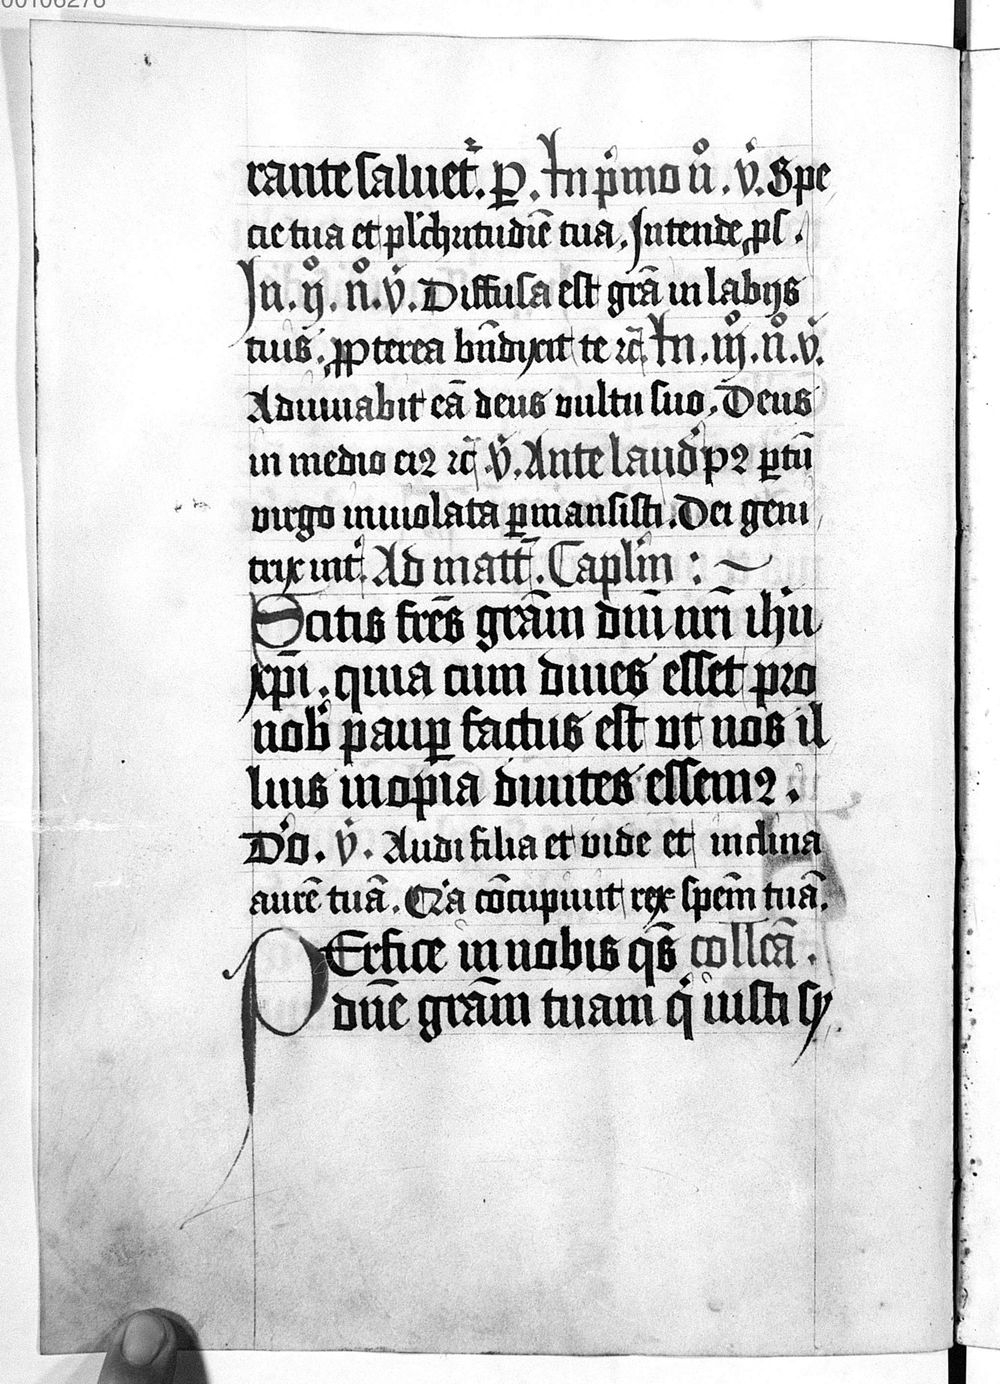 00106276
rante saluet᷑. ꝑ. In p̊mo n̊. v̊. Spe
cie tua et pl̓chritudīe tua. Intende, ꝓſ.
In. ij̊. n̊. v̊. Diffuſa est grā in labijs
tuis. ꝓpterea bn̄dixit te ⁊c̄. In. iij̊. n̊. v̊.
Adiuuabit eā deus vultu ſuo. Deus
in medio ei⁹ ⁊c̄. v̊. Ante laud̓ pꝰ ꝑtū
virgo inuiolata ꝑmanſiſti. Dei geni
trix int̓. Ad matt̄. Caplm̄ : ~
Scitis frēs grām dn̄i nr̄i ihū
xp̄i. quia cum diues eſſet pro
nob̓ pauꝑ factus eſt vt nos il
lius inopia diuites eſſemꝰ.
D̓o. v̊. Audi filia et vide et inclina
aurē tuā. Q̓a cōcupiuit rex ſpēm tuā.
PErfice in nobis qs̄ collcā.
dn̄e grām tuam q̓ iuſti ſy